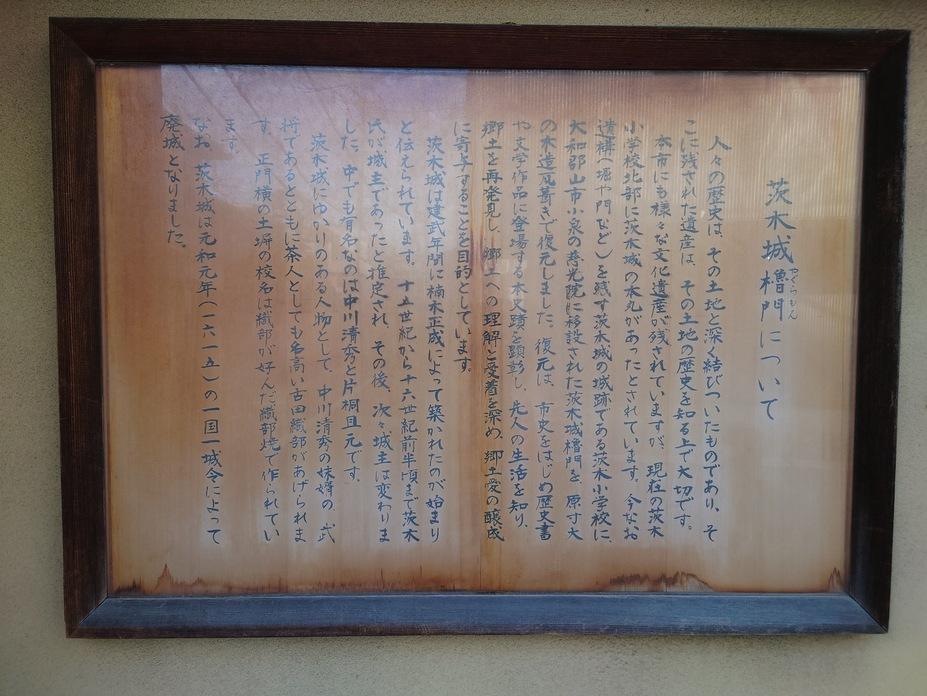 茨木城櫓門について
やぐらもん
人々の歴史は、その土地と深く結びついたものであり、そ
こに残された遺産は、その土地の歴史を知る上で大切です。
本市にも様々な文化遺産が残されていますが、現在の茨木
小学校北部に茨木城の本丸があったとされています。今なお
遺構（堀や門など）を残す茨木城の城跡である茨木小学校に、
大和郡山市小泉の慈光院に移設された茨木城櫓門を、原寸大
の木造瓦葺きで復元しました。復元は、市史をはじめ歴史書
や文学作品に登場する本史蹟を顕彰し、先人の生活を知り、
郷土を再発見し、郷土への理解と愛着を深め、郷土愛の醸成
に寄与することを目的としています。
茨木城は建武年間に楠木正成によって築かれたのが始まり
と伝えられています。十五世紀から十六世紀前半頃まで茨木
氏が城主であったと推定され、その後、次々城主は変わりま
した。中でも有名なのは中川清秀と片桐且元です。
茨木城にゆかりのある人物として、中川清秀の妹婿の、武
将であるとともに茶人としても名高い古田織部があげられま
す。正門横の土塀の校名は織部が好んだ織部焼で作られてい
ます。
なお、茨木城は元和元年（一六一五）の一国一城令によって
廃城となりました。